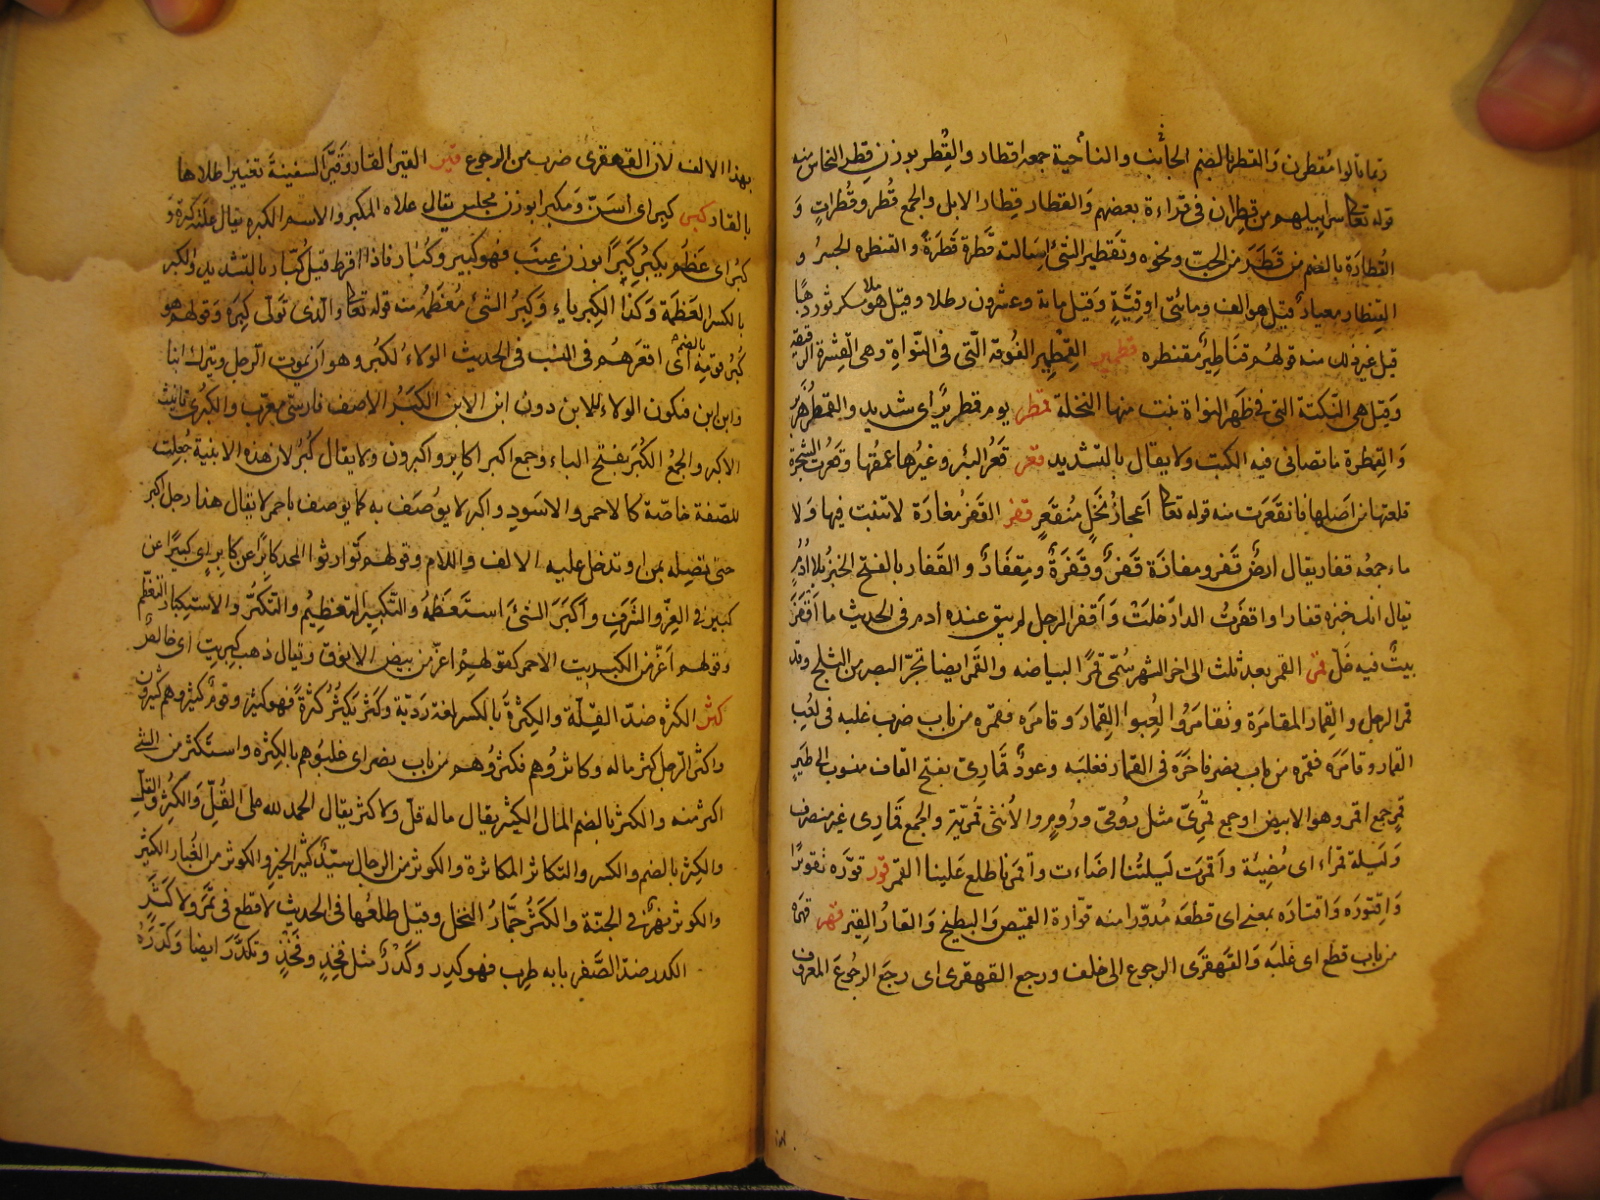 ربما قالوا مقطرن وَالقطر بالضم الجانب والناحية جمعه اقطار والقِطر بوزن قِطر النحاس ومنه
قوله تعالى سرابيلهم من قِطِران فى قراءة بعضهم وَالقطار قِطار الابل والجمع قُطُر وقُطُراتٍ وَ
القُطارَة بالضم من قَطَرَ من الحبّ ونحوه وتَقطير الشئ اسالته قَطْرة قَطْرَةً والقنطرة الجسرُ و
القِنطار معيارٌ قيل هو الف ومائتى اوقيَّةٍ وَقيل ماية وعشرون رطلا وقيل هو ملأ مسك ثور ذهبًا
قيل غير ذلك منه قولهُم قناطِيرٌ مقنطره قطمير القِطمِير الفُوفه الّتى فى النّواةِ وهى القِشرة الرقيقة
وَقِيل هى النّكتَة التى فى ظَهر النواة ينبت منها النخلة قمطر يوم قمطرِيرٌ اى شديد والقِمَطْرُ
وَالقِمطرة ما تصان فيه الكتب ولا يقال بالتشديد قعر قَعْر البئر وغيرُها عمقُها وقَعَرت الشجرة
قلعتها من اَصلها فانقعَرَت منه قوله تعالى اَعجازُ نَخلٍ مُنقَعِرٍ قفر القَفرُ مغازَة لا تنبت فيها وَلا
ماء جمعُه قفار يقال ارضٌ قَفر ومفازَة قَفرٌ وَقَفرَةٌ ومِقفَارٌ وَالقَفار بالفتح الخبزُ بلا اُدُمٍ
يقال اكل خبزه قفارا واقفَرَتُ الدارُ خلَتْ وَاَقفر الرجل لم يبق عنده ادم فى الحديث ما اَقفَرَ
بيتٌ فيه خَلّ قمر القمر بعد ثلث الى اخر الشهر سُمّى قمَرًا لبياضه والقَمَر ايضا تحيّر البصر من الثلج وقد
قمر الرجل والقِمار المقامَرة وتقامَرُوا لعِبوا القِمارَ وَقامَره فقمَره من باب ضرب غلبه فى لعِب
القمار وقامَرَه فقمَره من باب نصر فاخَرَه فى القمار فغلبَه وعودٌ قَمَارِىّ بفتح القاف منسوب الى طَيرٍ
قمرٍ جمع اقمر وهو الابيض او جمع قمْرِىّ مثل رُومىّ ورُومٍ والاُنثى قُمرَيّة والجمع قَمارِى غير منصرف
وَلَيلة قمراء اى مُضِيئة وَاَقمَرَت لَيلتُنا اضاءت وَاَقمَرنا طلع عَلينا القمر قور قوّرَه تقويرًا
وَاقتورَه وَاقتارَه بمعنى اى قطعَه مُدوّرا منه قوّارة القميص والبطيخ وَالقارُ القِير قهر قهَرَه
من باب قطع اى غلبَه وَالقَهقرَى الرجوع الى خلف ورجع القهقرى اى رجَع الرجُوعَ المعروف
بهذا الالف لان القهقرى ضرب من الرجوع قير القير القار وقيَّر السفينةَ تقييرا طلاها
بالقار كبر كبِر اى اَسَنَّ وَمكبِر ابوزن مجلسٍ يقال علاه المكبِر والاسم الكبرة يقال علَته كَبرةٌ وَ
كبُر اى عَظُم يَكبُر كِبَرًا بوزن عِنَبٍ فهو كبير وَكُبار فاذا افرط قيل كُبّار بالتشديد والكبر
بالكسر العَظَمَة وَكذا الكِبرياءِ وَكِبرُ الشئ مُعظَمُه منه قوله تعالى والّذى تَولّى كِبرَه وقولهُم هو
كُبْرُ قومِهِ بالضم اى اقعَدهُم فى النسب فى الحديث الولاءُ للكُبر وهو اَن يموت الرجل ويترك ابنا
وابن ابن فتكون الولاء للابن دونَ ابن الابن الكَبَرُ الاصف فارسىّ معرّب والكبرى تانيث
الاكبر والجمعُ الكُبَر بفتح الباء وجمع اكبر اكابر واكبرون ولا يقال كُبْر لان هذه الابنية جُعلِت
للصّفة خاصّة كالاحمر والاسَودِ واكبر لا يوُصَف به كما يوصف باحمر لا يقال هذا رجل اكبر
حتى تصِله بمن او تدخل عليه الالف واللام وقولهم تَوارثوا المجد كابِرًا عن كابرٍ اى كبيرًا عن
كبير فى العِزّ والشرَفِ وَاَكبَرَ الشئَ استَعظَمهُ والتّكبير التعظِيمُ والتّكبّر والاستِكبار التعظّم
وقولهم اَعزّ من الكبريت الاحمر كقولهِمُ اعزّ من بيض الانوق ويقال ذهب كِبريت اى خالصٌ
كثر الكثرة ضدّ القِلّة والكِثرةَ بالكسر لغة رَدَيّة وكَثُر يَكثُر كَثرَةً فهو كثيرٌ وقومٌ كثير وهم كثيرون
واكثر الرّجل كثر ماله وكاثروُهم فكثرُوهم من باب نصر اى غلبُوهم بالكِثرة واستَكثر من الشئ
اكثر منه والكثر بالضم المال الكثير يقال ماله قلّ ولا كثر يقال الحمد لله على القُلِّ والكثرِ والقلِّ
والكِثر بالضم والكسر والتكاثر المكاثرة والكوثر من الرجال سيّدٌ كثير الخير والكوثر من الغُبار الكثير
والكوثر نهرٌ فى الجنّة والكَثَرُ جمّارُ النخل وقيل طلعُها فى الحديث لا قطع فى ثمَر ولا كَثَرٍ
الكدر ضدّ الصَّفو بابه طرِب فهو كدِر وكَدْرٌ مثل فخِذٍ وفَخْذٍ وتكدَّرَ ايضا وَكدَّرَهُ